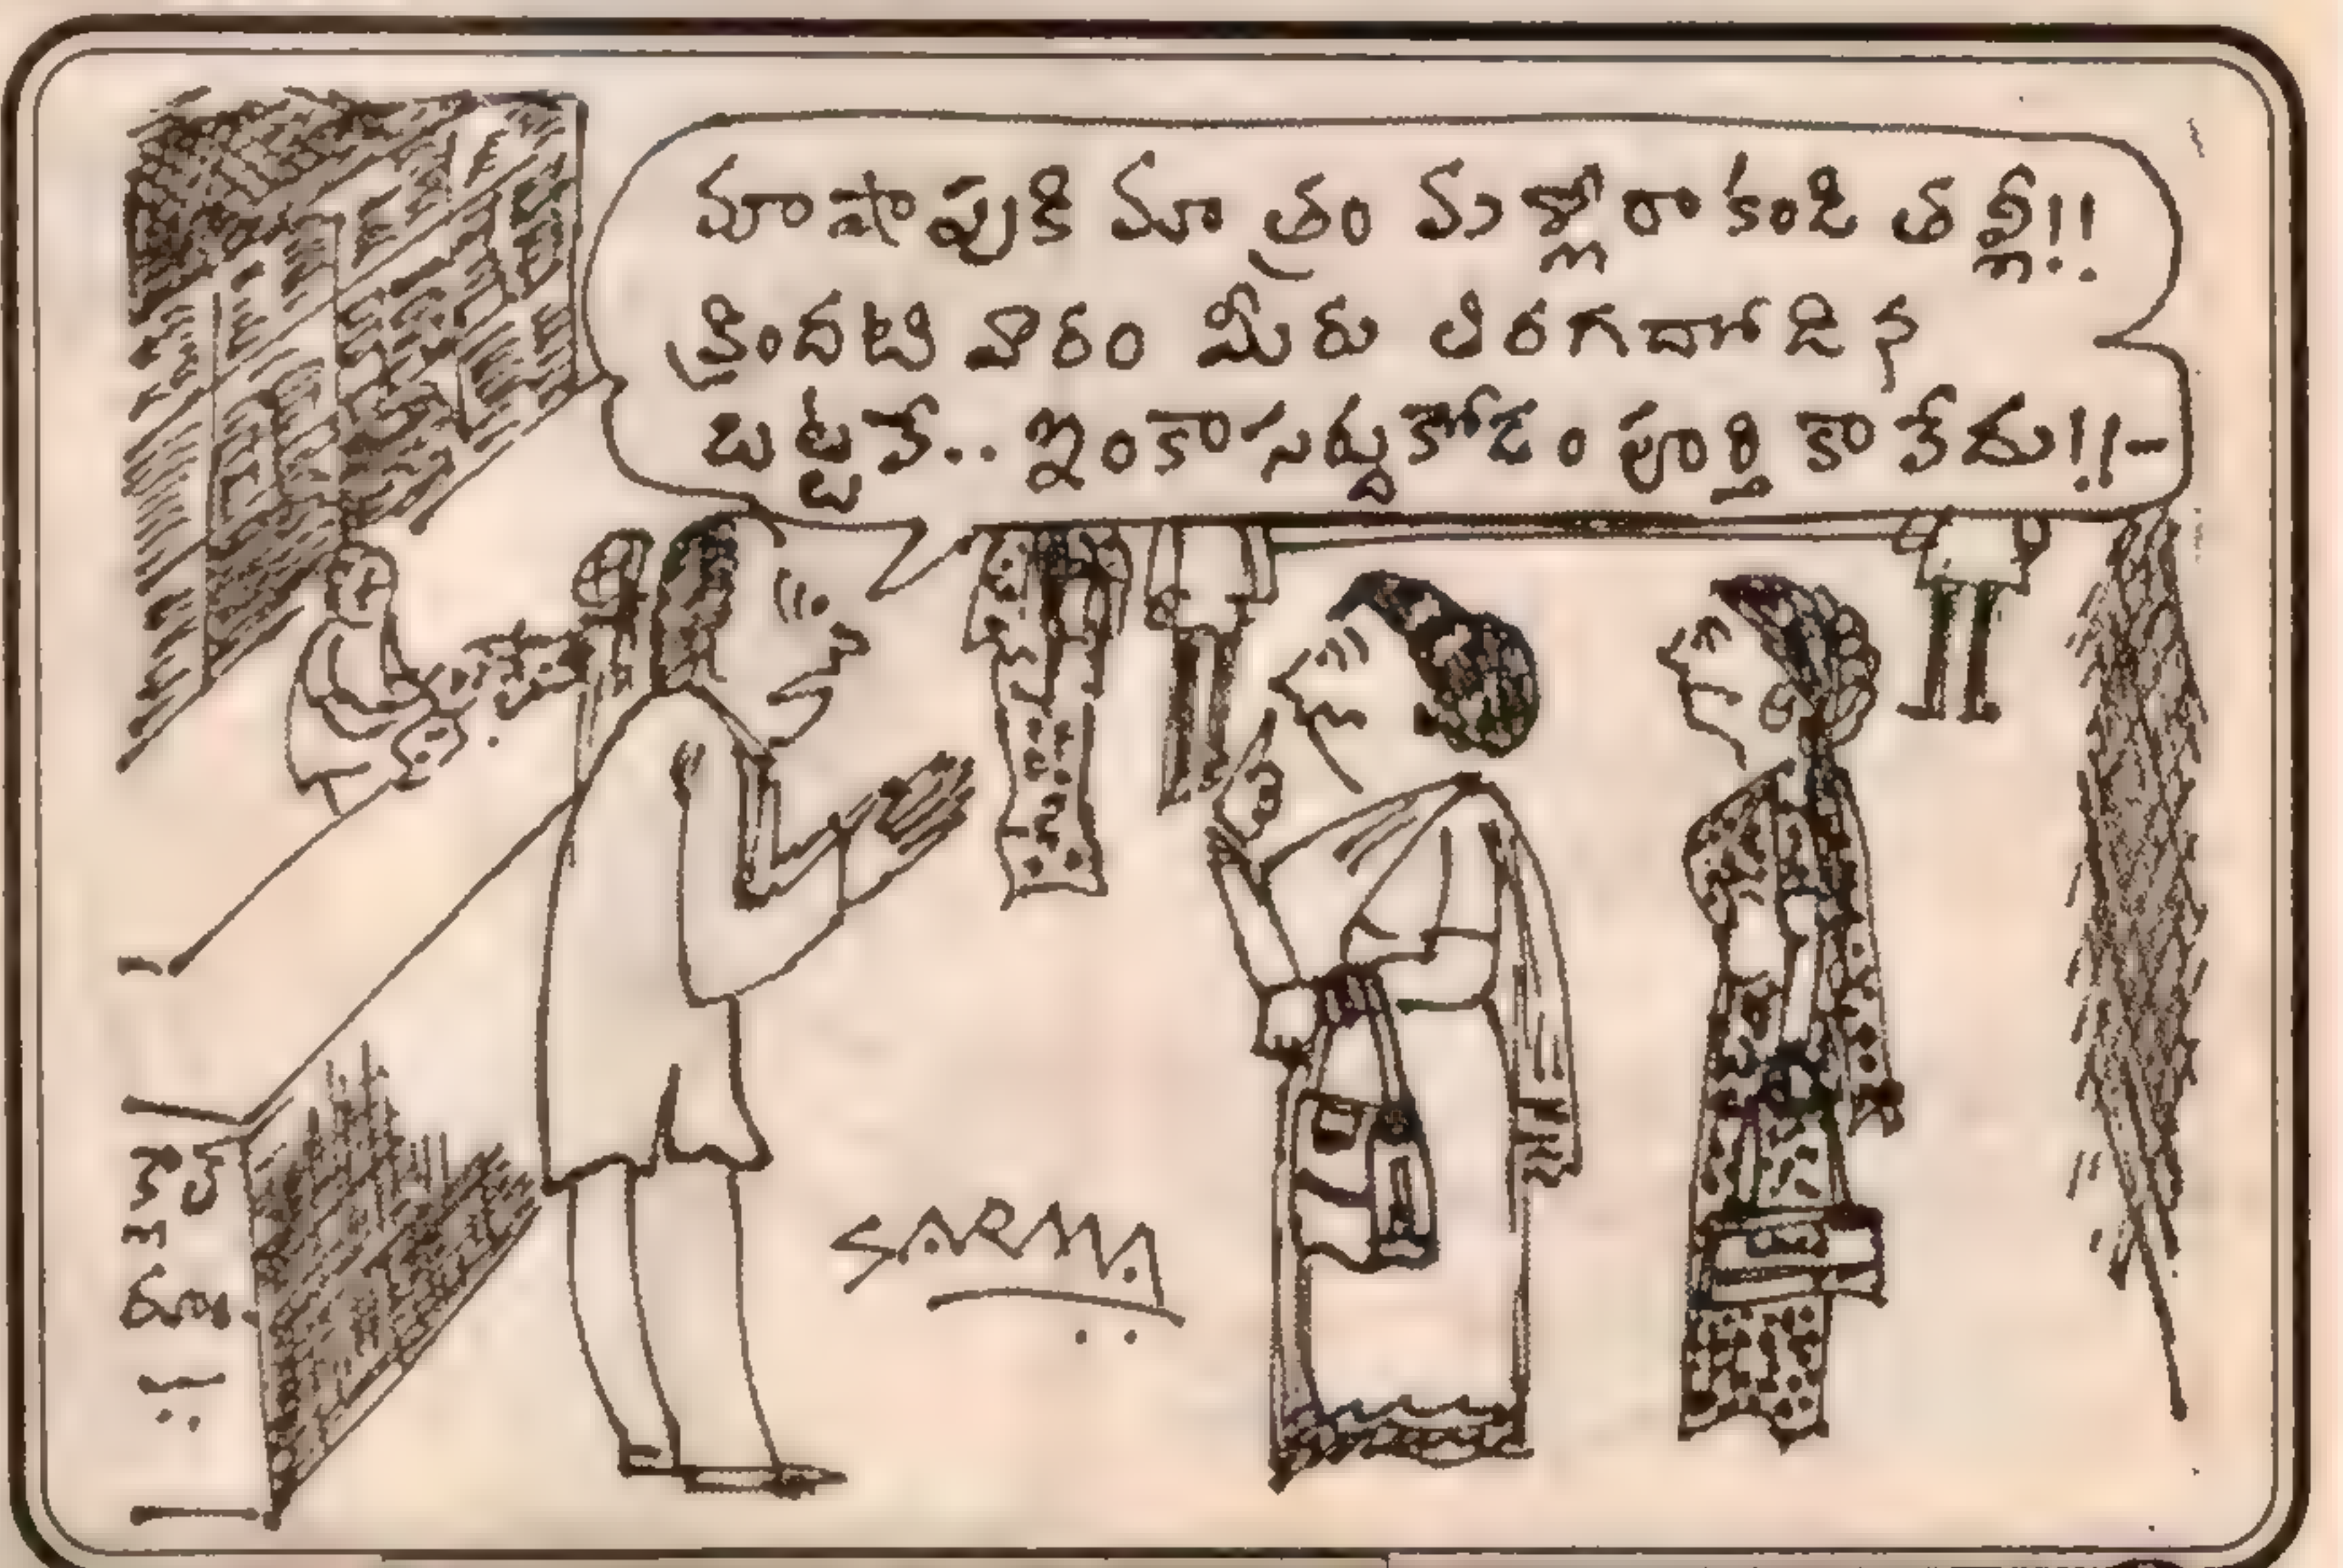 మా షాపుకి మాత్రం మళ్లీ రాకండి తల్లీ!!
క్రిందటి వారం మీరు తిరగదోడిన
బట్టలే.. ఇంకా సర్దుకోడం పూర్తి కాలేదు!!-
SARMA